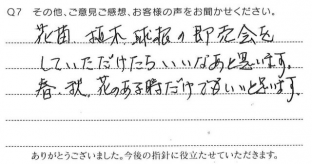 Q7 その他、ご意見ご感想、お客様の声をお聞かせください。
花苗、植木、球根の即売会を
していただけたらいいなあと思います。
春、秋、花のある時だけでもいいと思います。
ありがとうございました。今後の指針に役立たせていただきます。